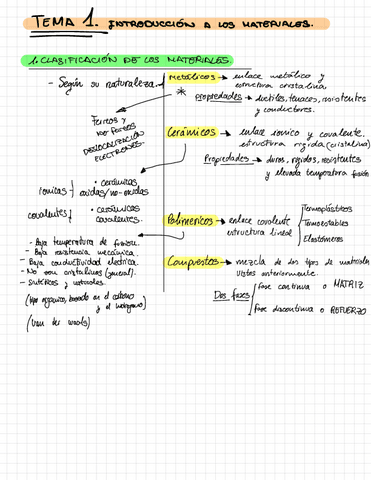 TEMA 1. INTRODUCCIÓN A LOS MATERIALES.
1. CLASIFICACIÓN DE LOS MATERIALES.
- Según su naturaleza.
Metálicos → enlace metálico y
estructura cristalina
*
propiedades → dúctiles, tenaces, resistentes
y conductores.
Férreos y
no férreos
DESLOCALIZACIÓN
ELECTRONES.
Cerámicos → enlace iónico y covalente.
estructura rígida (cristalina)
Propiedades → duros, rígidos, resistentes
y elevada temperatura fusión
ionitas } • cerámicas
oxidas/no-oxidas
covalentes } • cerámicas
covalentes.
Polimericos → enlace covalente
estructura lineal
Termoplásticos
Termoestables
Elastómeros
- Baja temperatura de fusión.
- Baja resistencia mecánica.
- Baja conductividad eléctrica.
- No son cristalinos (general).
- Sintéticos y naturales.
(tipo orgánico, basado en el carbono
y el hidrógeno)
(Van der Waals)
Compuestos → mezcla de dos tipos de materiales
vistos anteriormente.
Dos fases
Fase continua o MATRIZ
Fase discontinua o REFUERZO